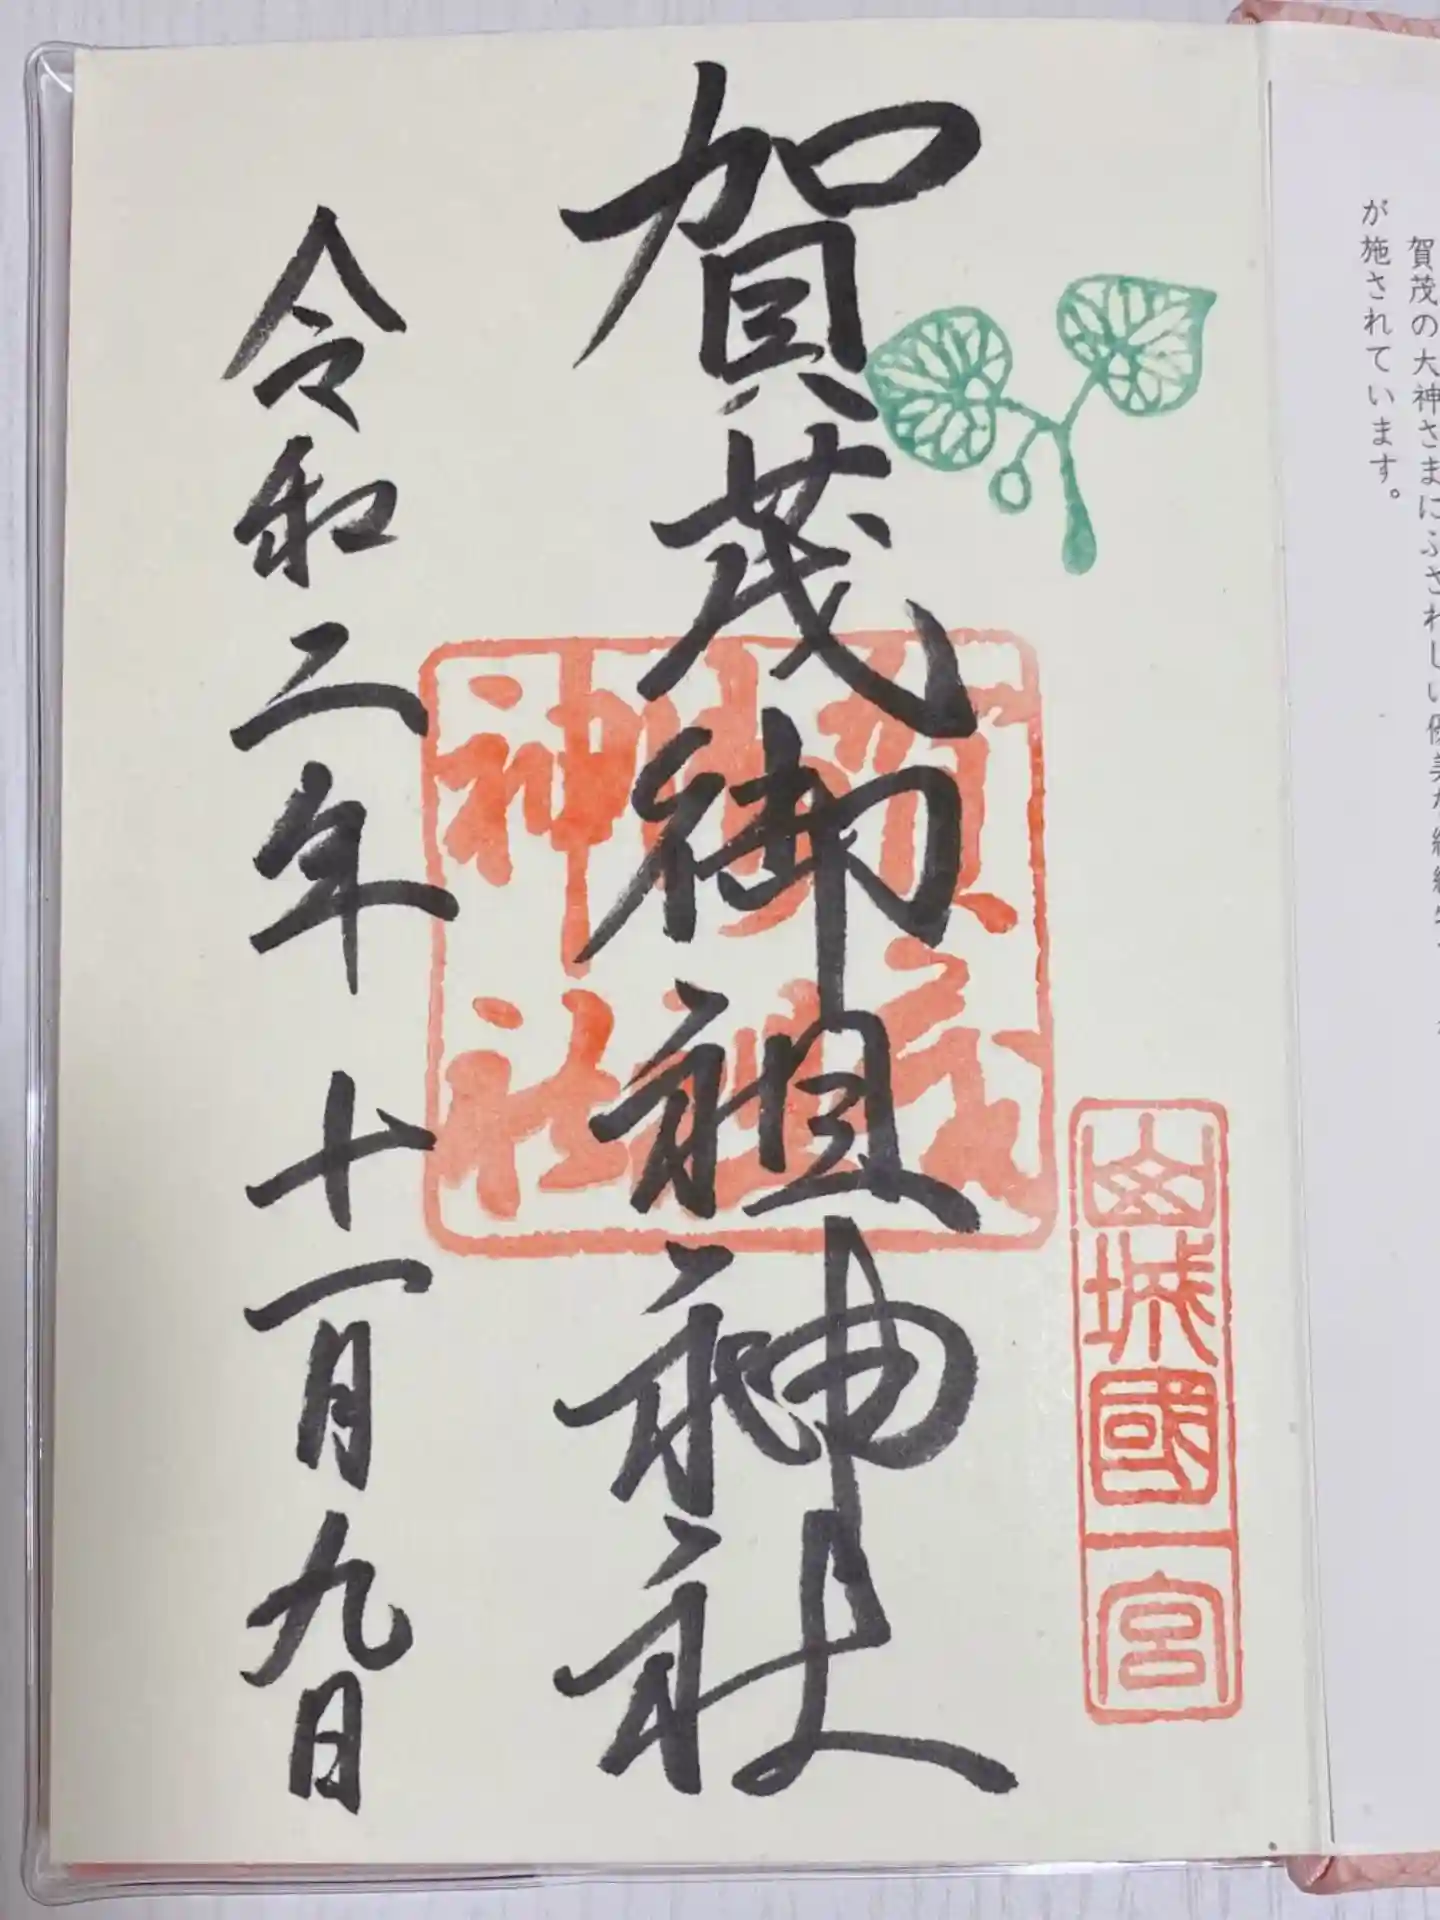 賀茂の大神さまにふさわしい優美な
が施されています。
山城國一宮
賀茂御祖神社
賀茂御祖神社
令和二年十一月九日